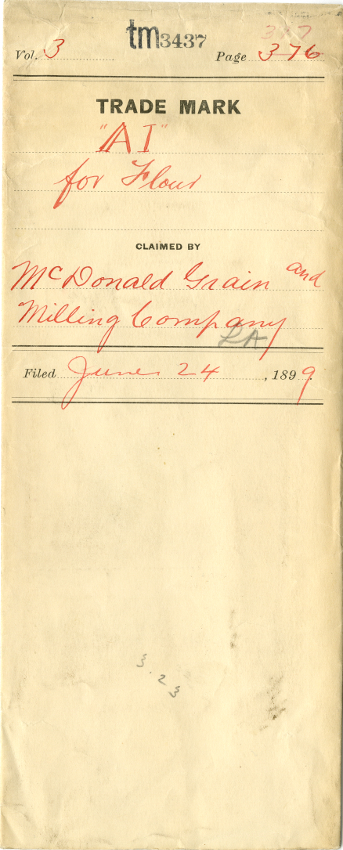 317
Vol. 3 tm3437 Page 376
TRADE MARK
"A I"
for Flour
CLAIMED BY
McDonald Grain and
Milling Company
LA
Filed June 24, 1899.
3.23